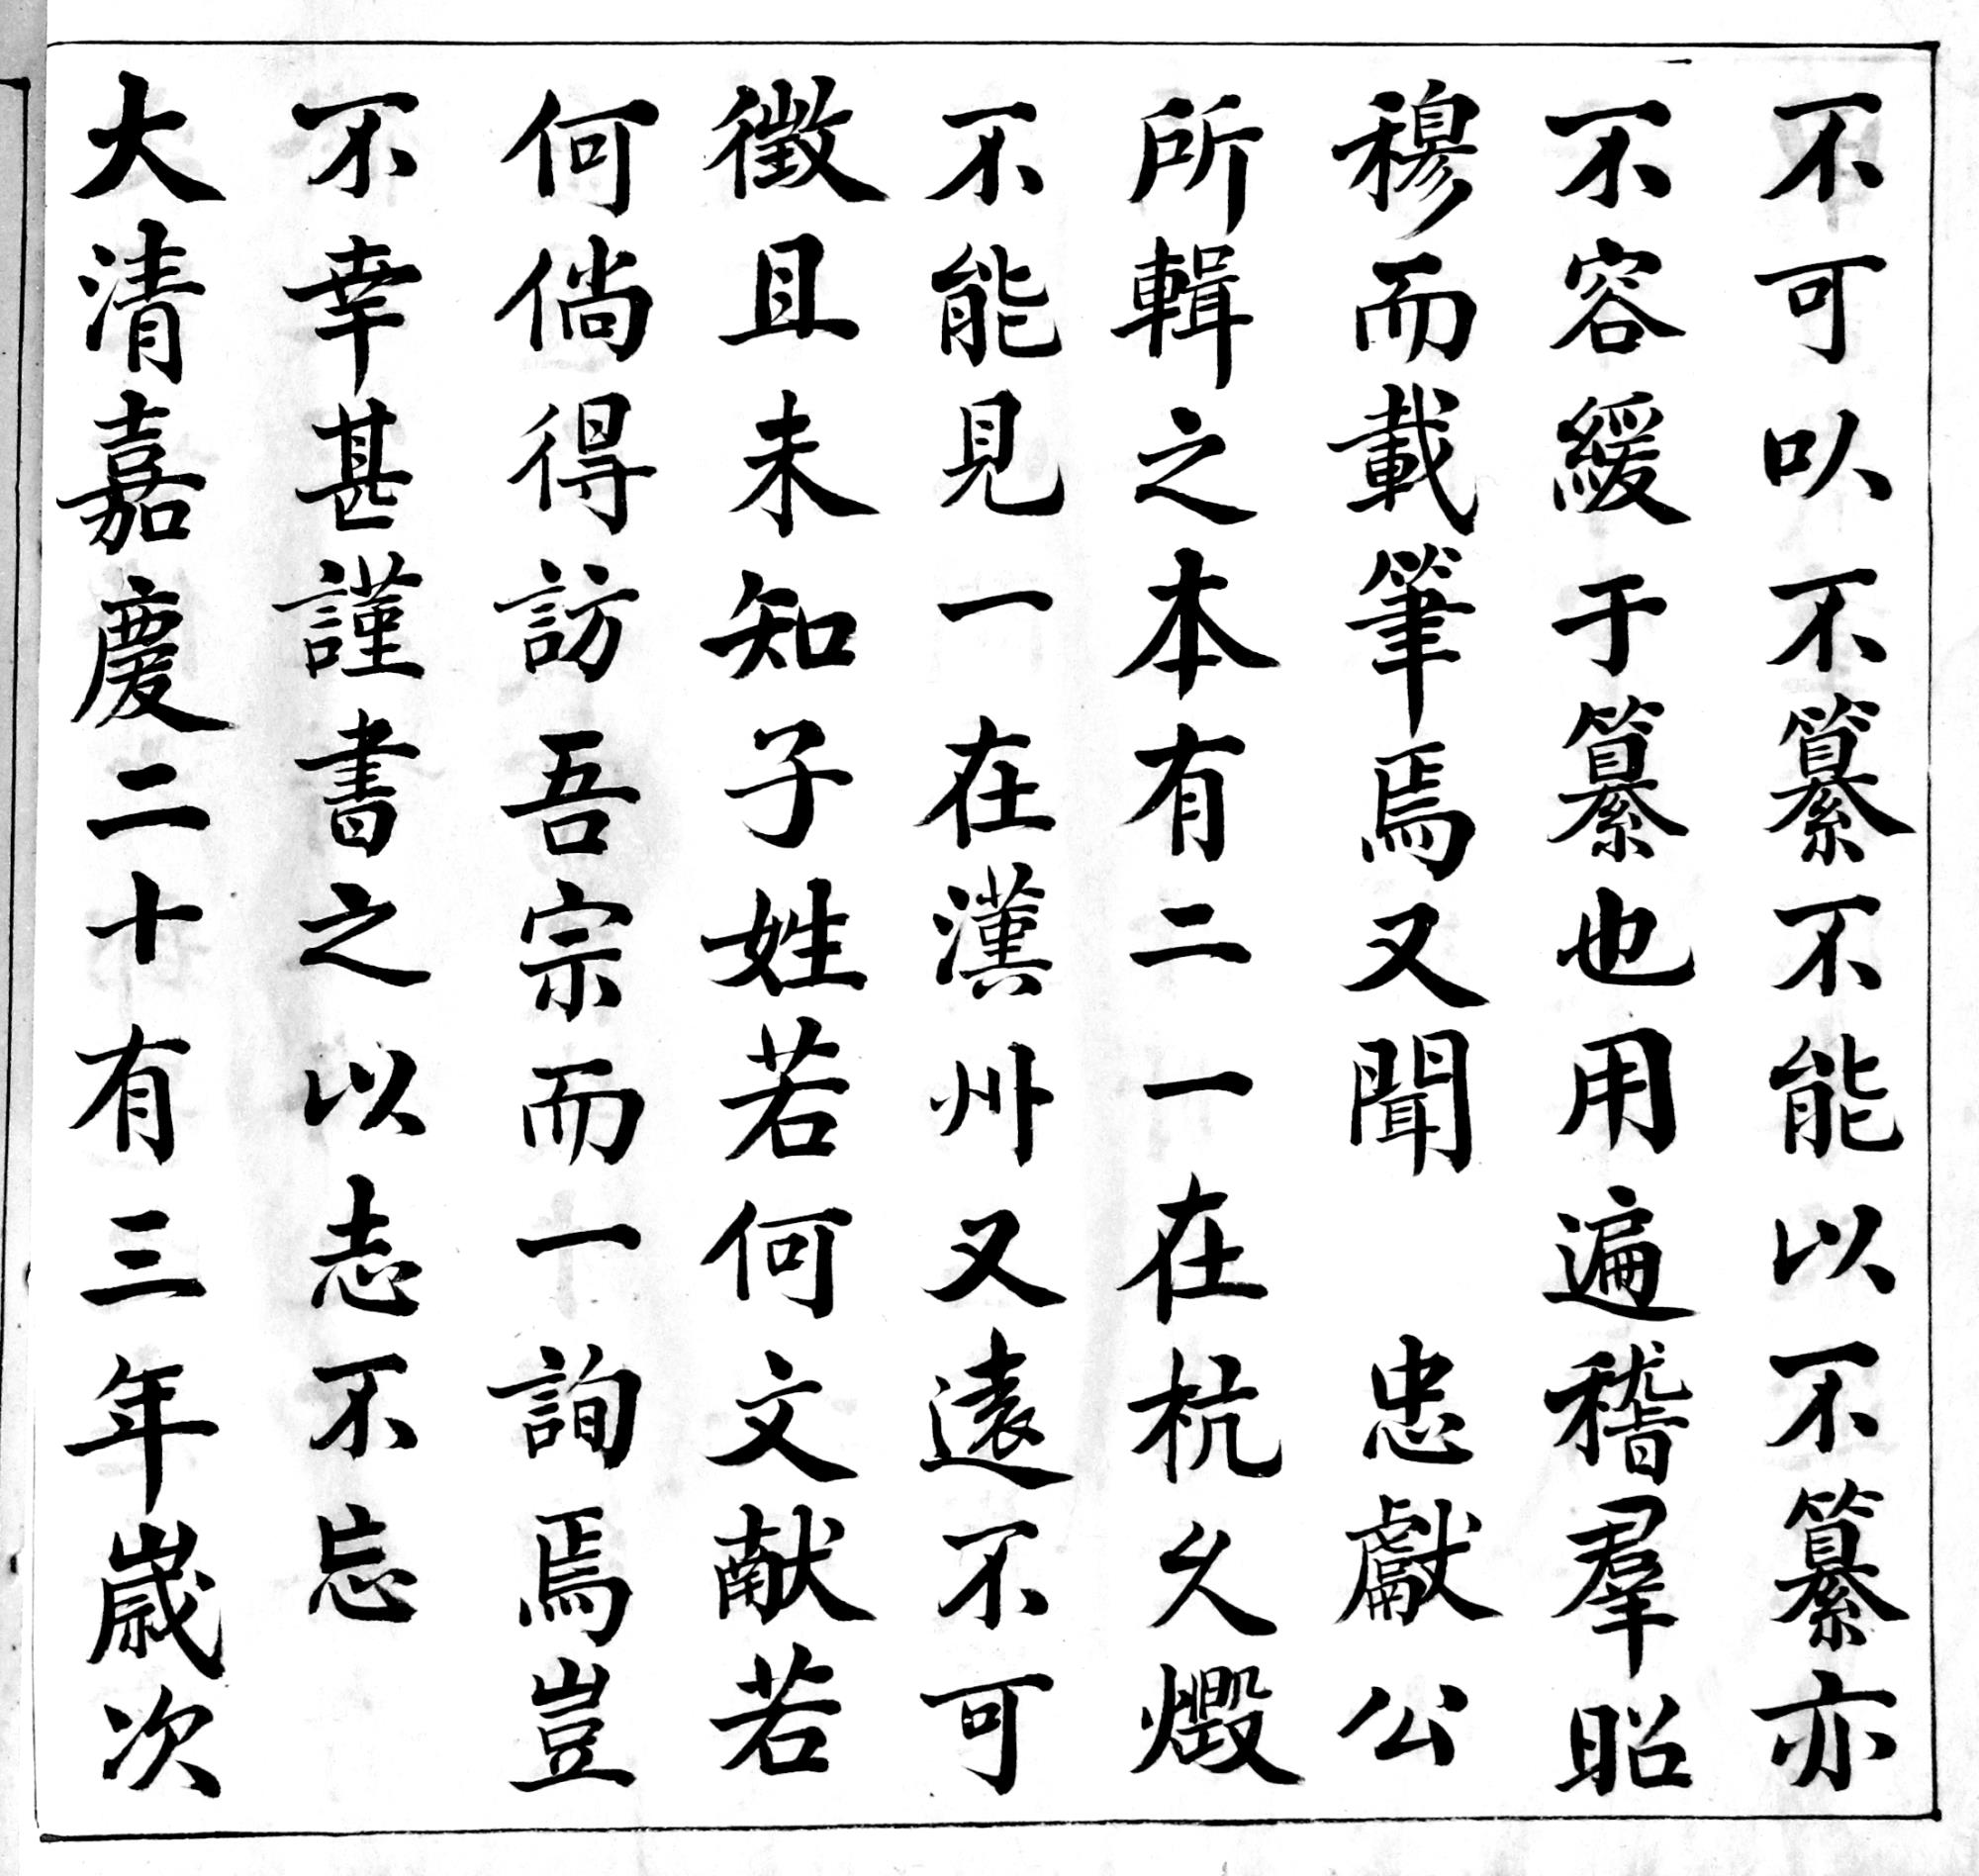 不可㕥不纂不能以不纂亦
不容緩于纂也用遍稽羣昭
穆而載筆焉又聞　忠獻公
所輯之本有二一在杭久燬
不能見一在漢州又遠不可
徵且未知子姓若何文献若
何倘得訪吾宗而一詢焉豈
不幸甚謹書之以志不忘
大清嘉慶二十有三年歲次